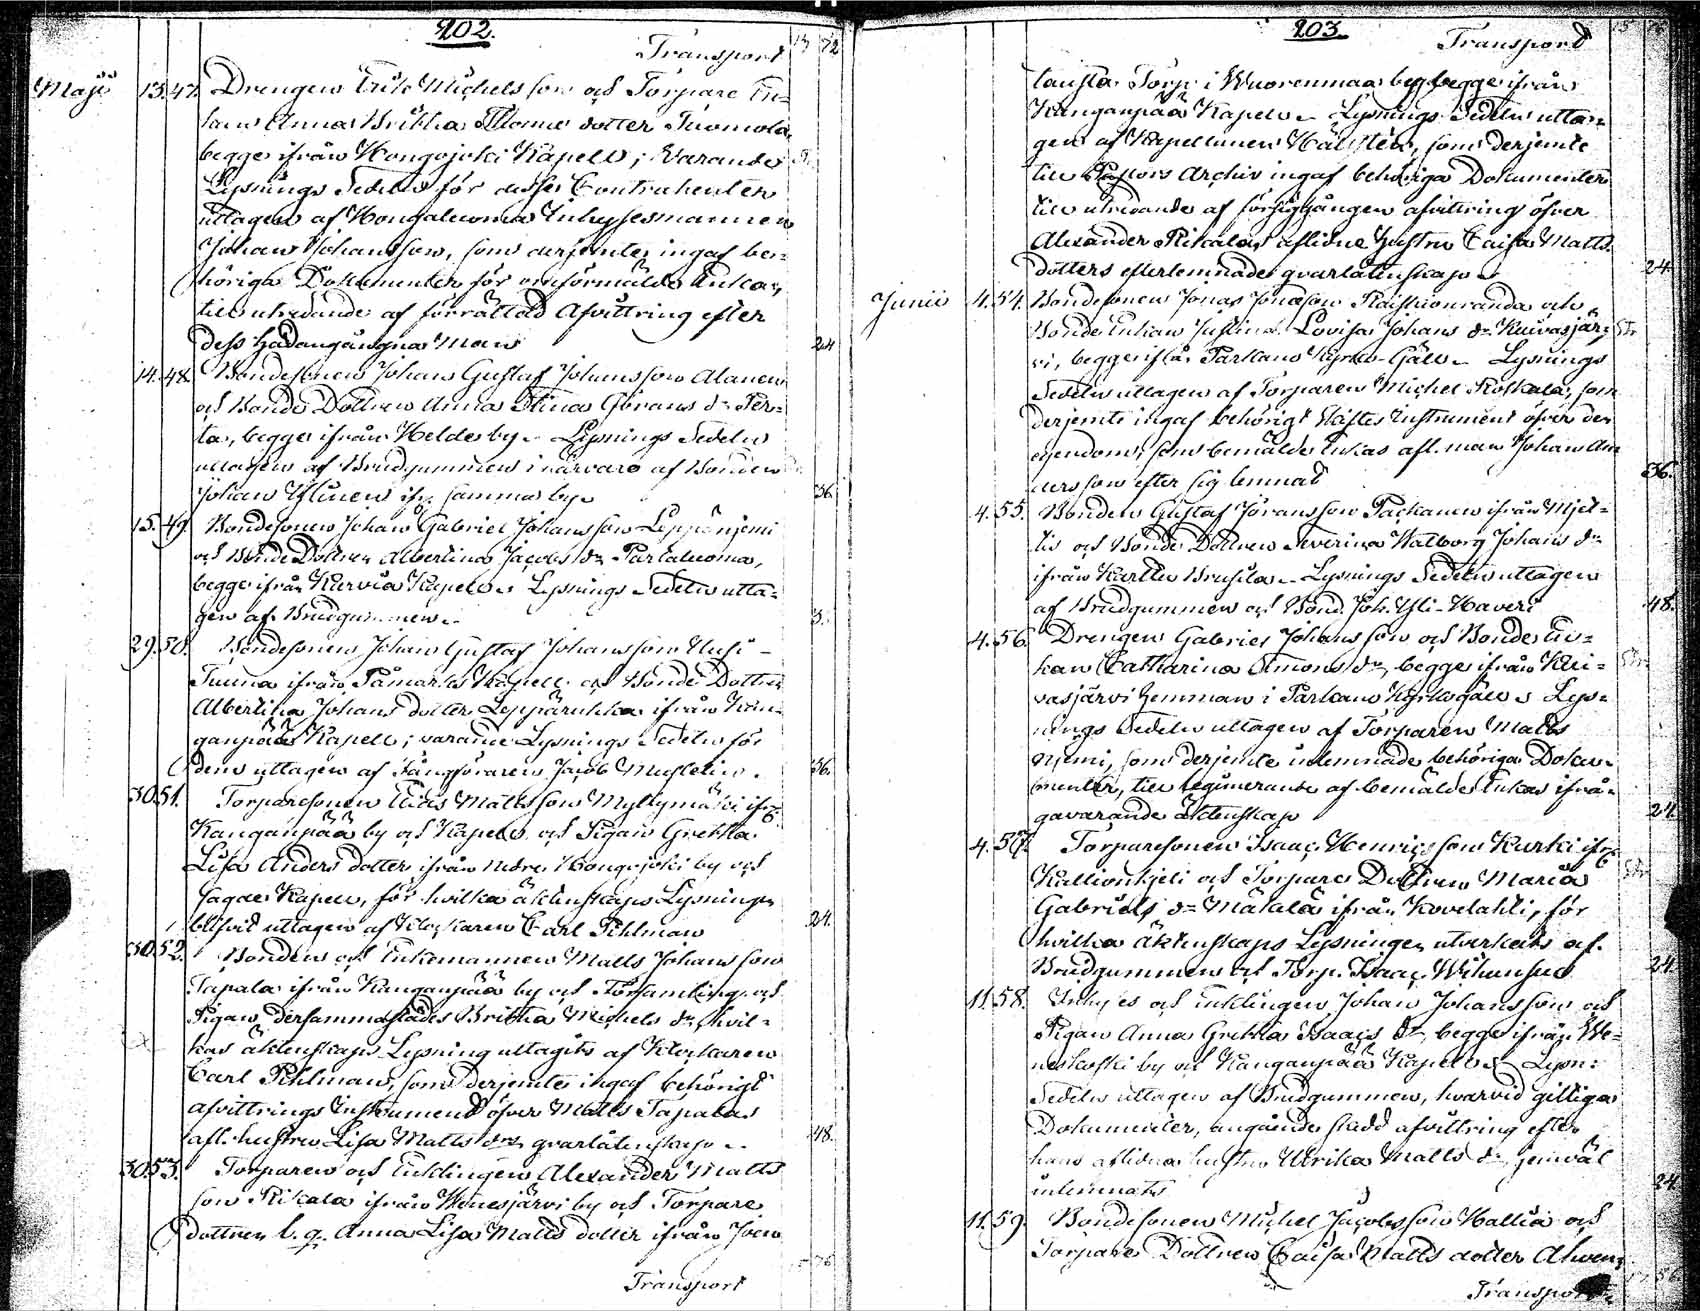 202.
Transport
Maji 13. 47. Drengen Erik Michelsson och Torpare En=
kan Anna Britha Thome dotter Tuomola,
begge ifrån Hongojoki Kapell; Varande
Lysnings Sedeln för desse Contrahenter
uttagen af Hongaluoma Inhysesmannen
Johan Johansson, som derjemte ingaf be=
höriga Dokumenter för omförmälde Enkas,
till utredande af förrättad Afvittring efter
dess hädangångna Man 24
14. 48. Bondesonen Johan Gustaf Johansson Alanen
och Bonde Dottren Anna Stina Görans dr Per=
ta, begge ifrån Heldes by. Lysnings Sedeln
uttagen af Brudgummen i närvaro af Bonden
Johan Ylinen ifr. samma by. 36.
15. 49. Bondesonen Johan Gabriel Johansson Leppäniemi
och Bonde Dottren Albertina Jacobs dr Partaluoma,
begge ifrån Karvia Kapell. Lysnings Sedeln utta=
gen af Brudgummen. 3.
29. 50. Bondesonen Johan Gustaf Johansson Uusi-
Tuuna ifrån Påmarks Kapell och Bonde Dottren
Albertina Johans dotter Leppäruhka ifrån Kan=
ganpää Kapell; varande Lysnings Sedeln för
dem uttagen af Fångföraren Jacob Mustelin. 36.
30. 51. Torparesonen Elias Mattsson Myllymäki ifr.
Kanganpää by och Kapell och Pigan Gretha
Lisa Anders dotter ifrån Nedre Hongojoki by och
sagde Kapell, för hvilka äktenskaps Lysningen
blifvit uttagen af Klockaren Carl Pihlman 24.
30. 52. Bonden och Enkemannen Matts Johansson
Tapala ifrån Kanganpää by och Församling och
Pigan dersammastädes Britha Michels dr, hvil=
kas äktenskaps Lysning uttagits af Klockaren
Carl Pihlman, som derjemte ingaf behörigt
afvittrings Instrument öfver Matts Tapalas
afl. hustru Lisa Matts drs qvarlåtenskap. 48.
30. 53. Torparen och Enklingen Alexander Matts
son Rikala ifrån Wenesjärvi by och Torpare
dottren b. q. Anna Lisa Matts dotter ifrån Joen
Transport
203.
Transport
tausta Torp i Wuorenmaa by, begge ifrån
Kanganpää Kapell. Lysnings Sedeln utta=
gen af Kapellanen Hällsten, som derjemte
till Pastors Archiv ingaf behöriga Dokumenter
till utredande af försiggången afvittring öfver
Alexander Rikalas aflidne hustru Caisa Matts
dotters efterlemnade qvarlåtenskap. 24.
Junii 4. 54. Bondesonen Jonas Jonasson Raiskionranda och
Bonde Enkan Justina Lovisa Johans dr Kuivasjär=
vi, begge ifrån Parkano Kyrko-Gäll. Lysnings
Sedeln uttagen af Torparen Michel Koskela, som
derjemte ingaf behörigt Skiftes Instrument öfver den
egendom, som bemälde Enkas afl. man Johan An
dersson efter sig lemnat 36.
4. 55. Bonden Gustaf Jöransson Packanen ifrån Mjet=
tis och Bonde Dottren Severina Walborg Johans dr
ifrån Kartlu Brusila. Lysnings Sedeln uttagen
af Brudgummen och Bond. Joh. Yli-Haveri 48.
4. 56. Drengen Gabriel Johansson och Bonde En=
kan Catharina Simons dr, begge ifrån Kui=
vasjärvi hemman i Parkano Kyrkogäll. Lys=
nings Sedeln uttagen af Torparen Matts
Niemi, som derjemte inlemnade behöriga Doku=
menter, till legitimerande af bemälde Enkas ifrå=
gavarande äktenskap 24.
4. 57. Torparesonen Isaac Henricsson Kurki ifr.
Kallionkjeli och Torpare Dottren Maria
Gabriels dr Mäkelä ifrån Kovelahti, för
hvilka äktenskaps Lysningen utverkats af
Brudgummen och Torp. Isaac Wihansuo 24.
11. 58. Inhyses och Enklingen Johan Johansson och
Pigan Anna Gretha Isaacs dr, begge ifrån We=
neskoski by och Kanganpää Kapell. Lysn:
Sedeln uttagen af Brudgummen, hvarvid giltiga
Dokumenter, angående skedd afvittring efter
hans aflidna hustru Ulrika Matts dr, jemväl
inlemnats 24.
11. 59. Bondesonen Michel Jacobsson Kallia och
Torpare Dottren Caisa Matts dotter Ahven=
Transport